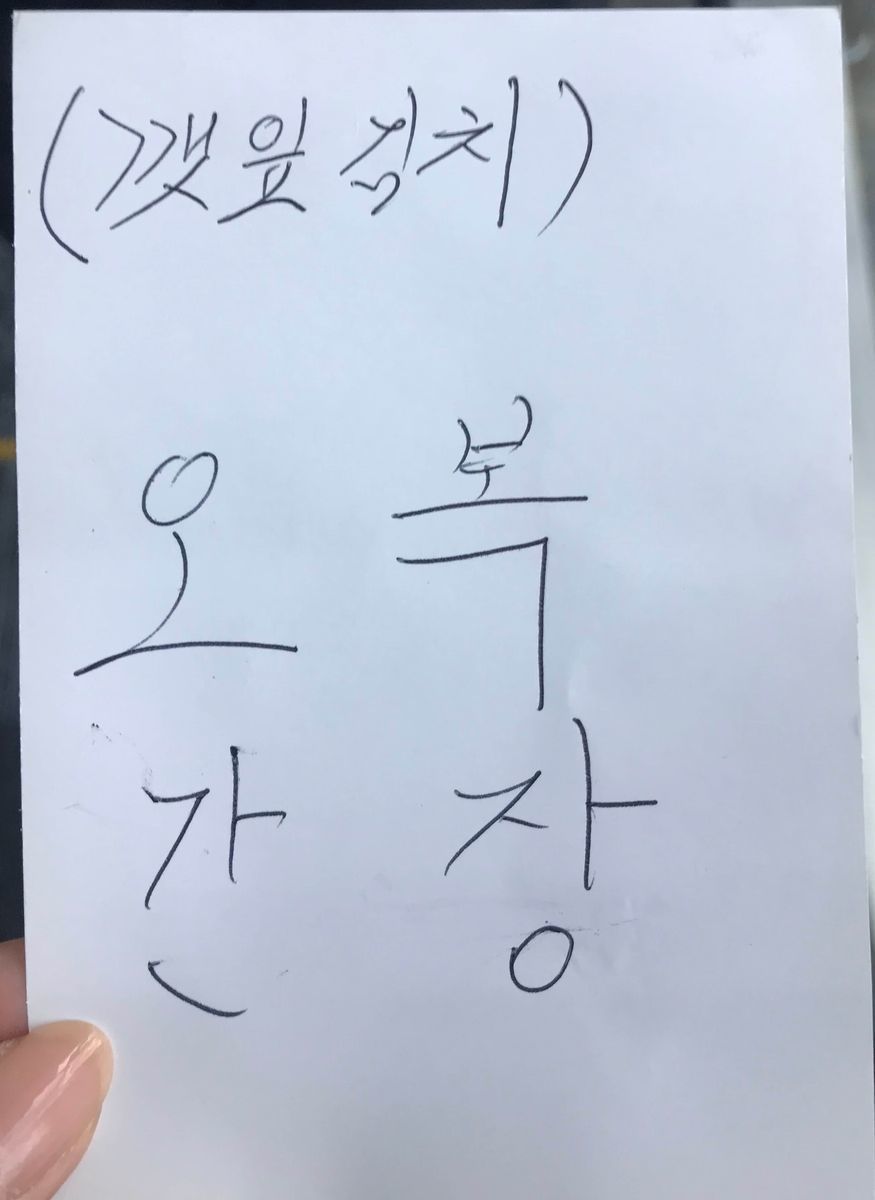 (깻잎김치)
오복
간장